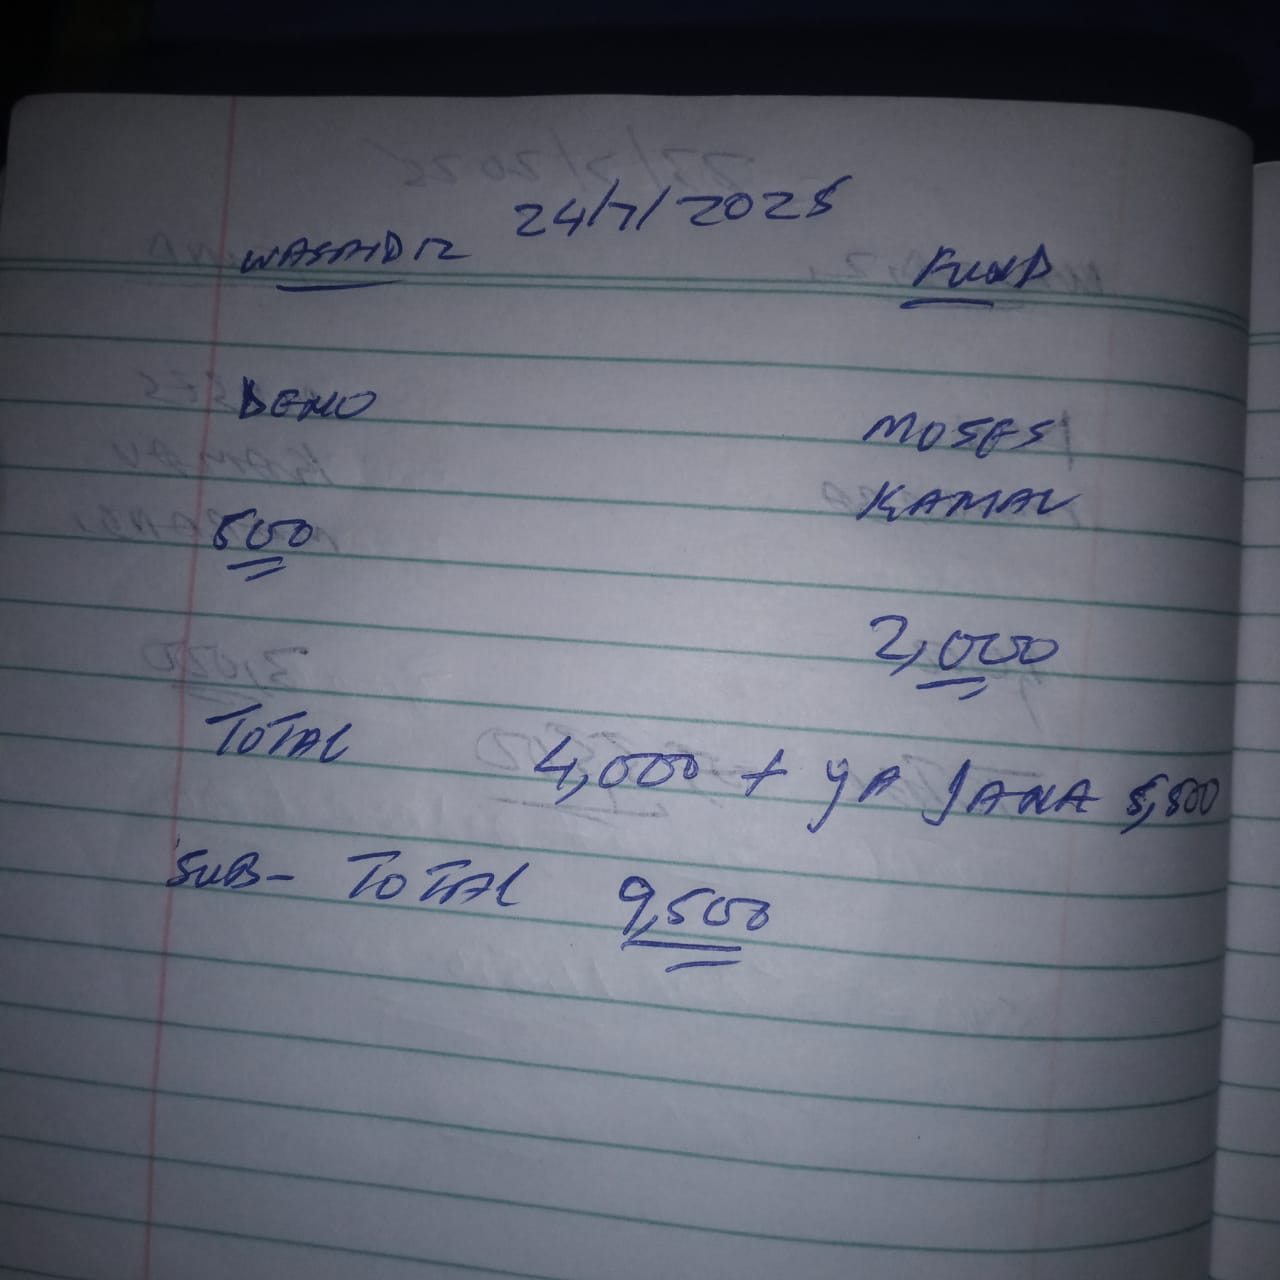 24/7/2025
WASAIDIZ FUND
DEMO MOSES
KAMAU
500
2,000
TOTAL 4,000 + YA JANA 5,500
SUB-TOTAL 9,500